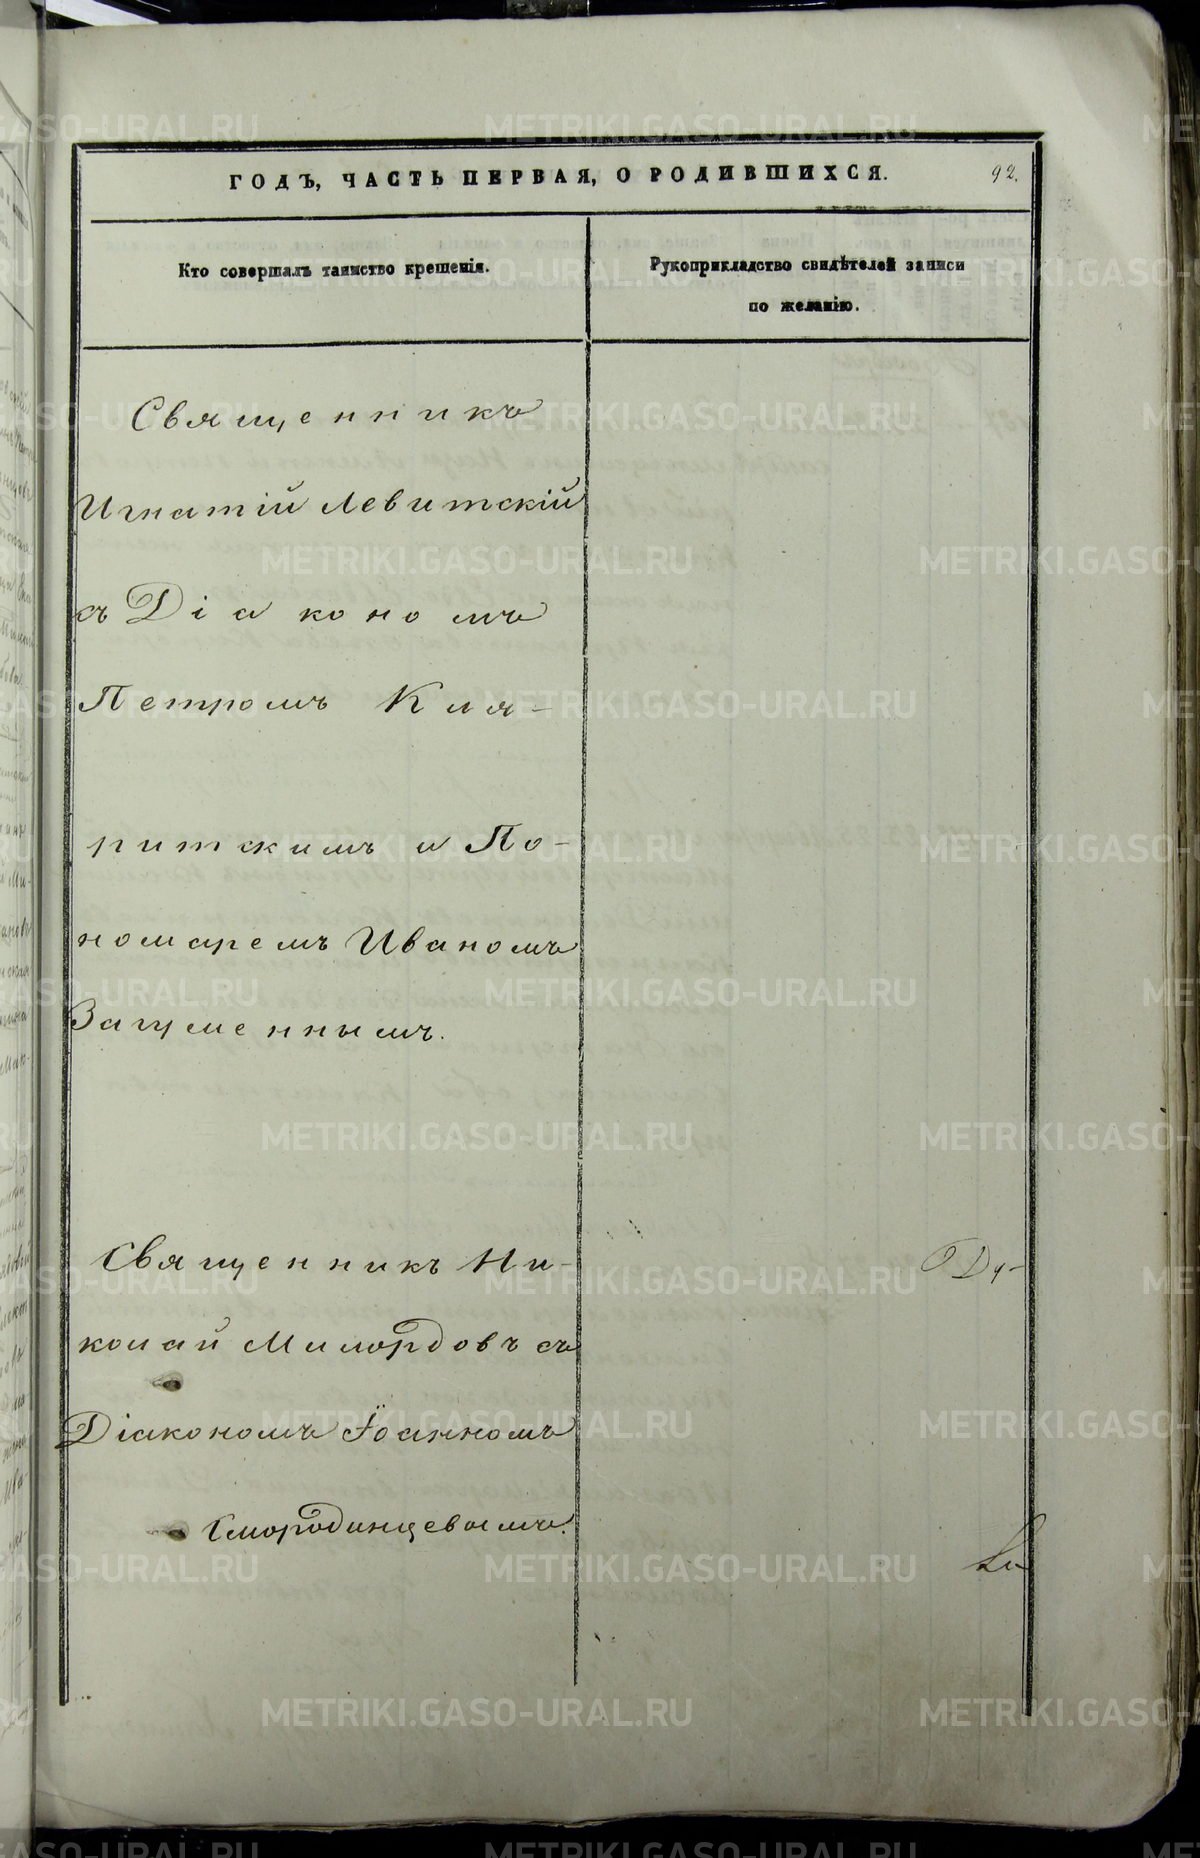 ГОДЪ, ЧАСТЬ ПЕРВАЯ, О РОДИВШИХСЯ. 92.
Кто совершалъ таинство крещенія.
Рукоприкладство свидѣтелей записи
по желанію.
Священникъ
Игнатій Левитскій
съ Діакономъ
Петромъ Кля-
ритскимъ и По-
номаремъ Иваномъ
Загуменнымъ.
Священникъ Ни-
колай Милордовъ съ
Діакономъ Іоанномъ
Смородинцевымъ.
Ду-
METRIKI.GASO-URAL.RU